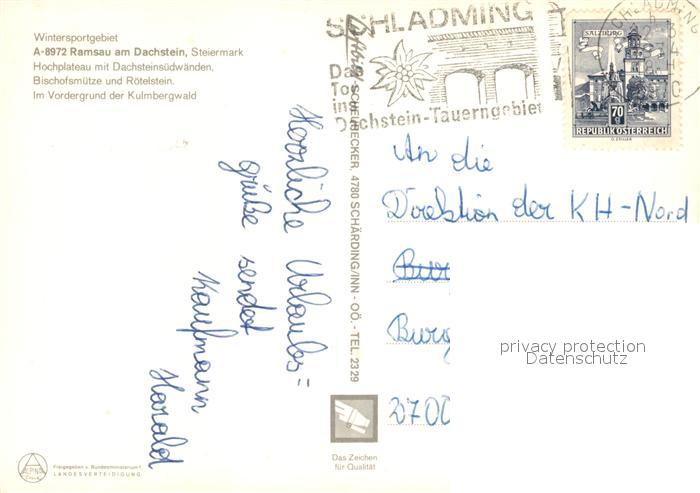 Wintersportgebiet
A-8972 Ramsau am Dachstein, Steiermark
Hochplateau mit Dachsteinsüdwänden,
Bischofsmütze und Rötelstein.
Im Vordergrund der Kulmbergwald
SCHLADMING
Das
Tor
ins
Dachstein-Tauerngebiet
SCHLADMING
SALZBURG
70
REPUBLIK ÖSTERREICH
SCHEUBECKER, 4780 SCHÄRDING/INN - OÖ. - TEL. 23 29
Herzliche Urlaubs=
grüße sendet
Kaufmann
Harald
An die
Direktion der KH-Nord
Bur
Burg
2700
privacy protection
Datenschutz
Das Zeichen
für Qualität
Freigegeben v. Bundesministerium f.
LANDESVERTEIDIGUNG